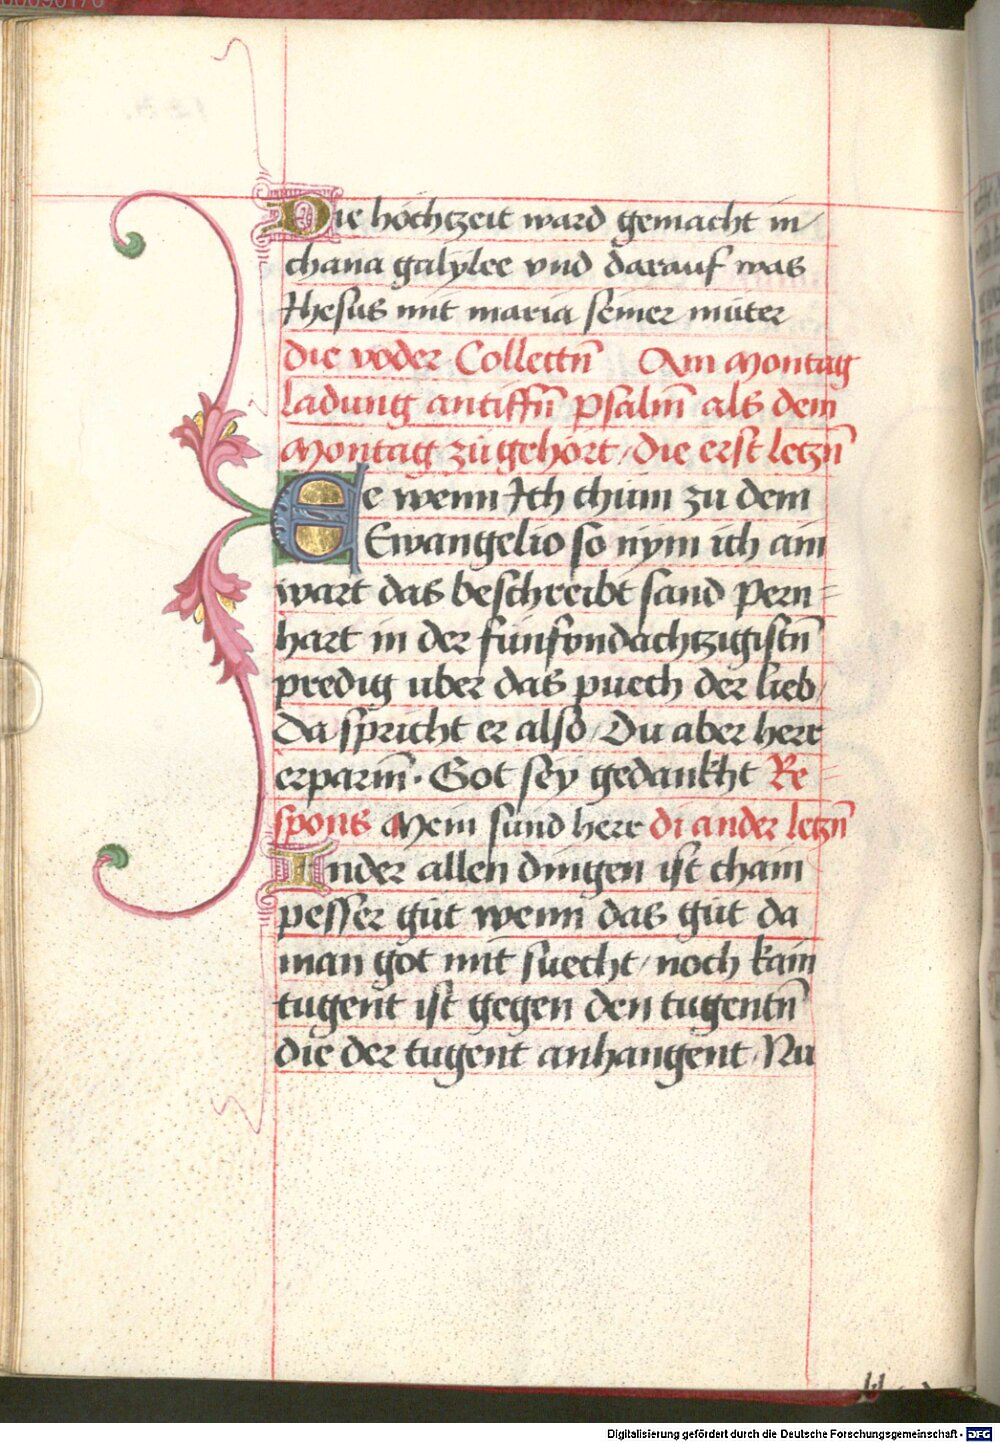 Die hochtzeit ward gemacht in
chana galylee vnd darauf was
Jhesus mit maria seiner muter
die voder Collectn̄ Am Montag
ladung antiffn̄ psalm̄ als dem
Montag zu gehort / die erst letzn̄
Ee wenn Ich chum zu dem
Ewangelio so nym ich ain
wart das beschreibt sand Pern=
hart in der funfvndachtzigistn̄
predig uber das puech der lieb /
Da spricht er also / Du aber herr
erparm̄ · Got sey gedankht Re=
spons Mein sund herr di ander letzn̄
Inder allen dingen ist chain
pesser gut wenn das gut da
man got mit suecht / noch kain
tugent ist gegen den tugentn̄
die der tugent anhangent / Nu
Digitalisierung gefördert durch die Deutsche Forschungsgemeinschaft - DFG